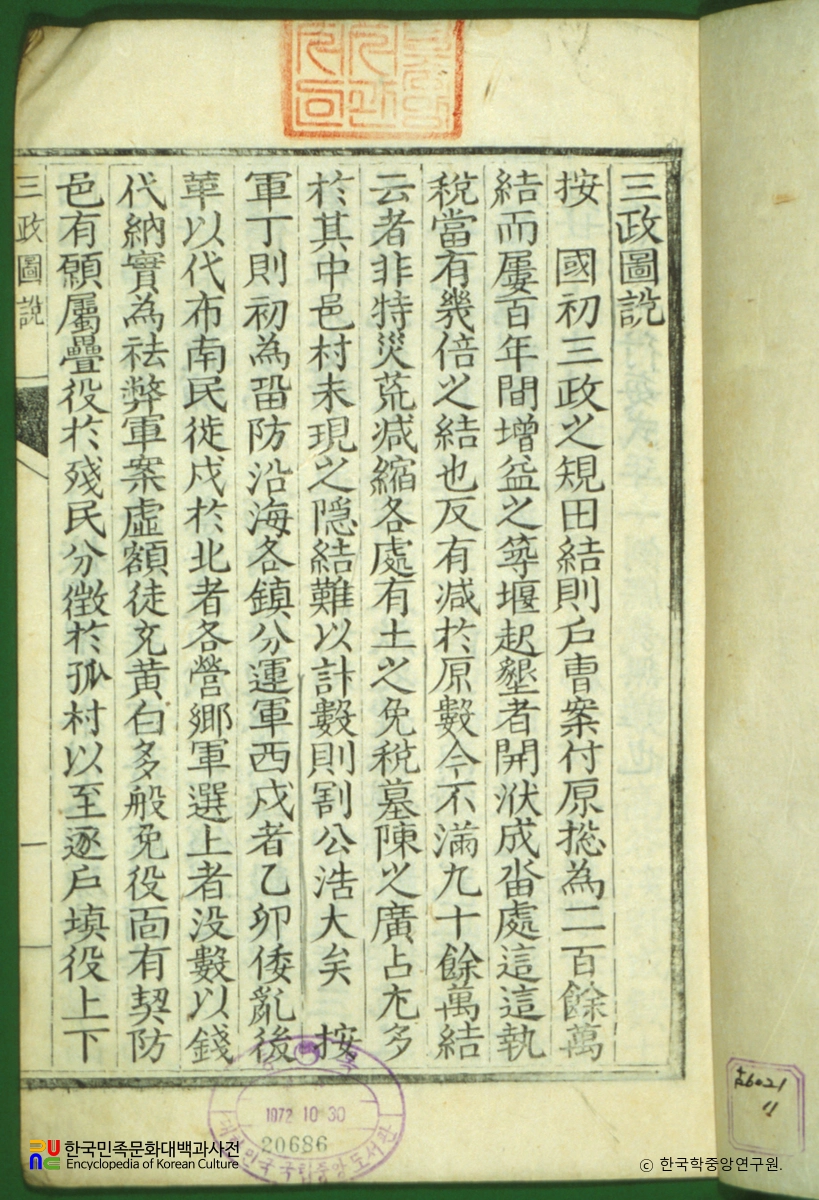 三政圖說
按 國初三政之規田結則戶曹案付原摠為二百餘萬
結而屢百年間增益之築堰起墾者開洑成畓處這這執
稅當有幾倍之結也反有減於原數今不滿九十餘萬結
云者非特災荒減縮各處有土之免稅墓陳之廣占尤多
於其中邑村未現之隱結難以計數則割公浩大矣 按
軍丁則初為留防沿海各鎮分運軍西戍者乙卯倭亂後
革以代布南民徙戍於北者各營鄉軍選上者沒數以錢
代納實為祛弊軍案虛額徒充黃白多般免役面有契防
邑有願屬疊役於殘民分徵於孤村以至逐戶填役上下
三政圖說
1972 10 30
20686
국립중앙도서관
古6021
11
한국민족문화대백과사전
Encyclopedia of Korean Culture
ⓒ 한국학중앙연구원.